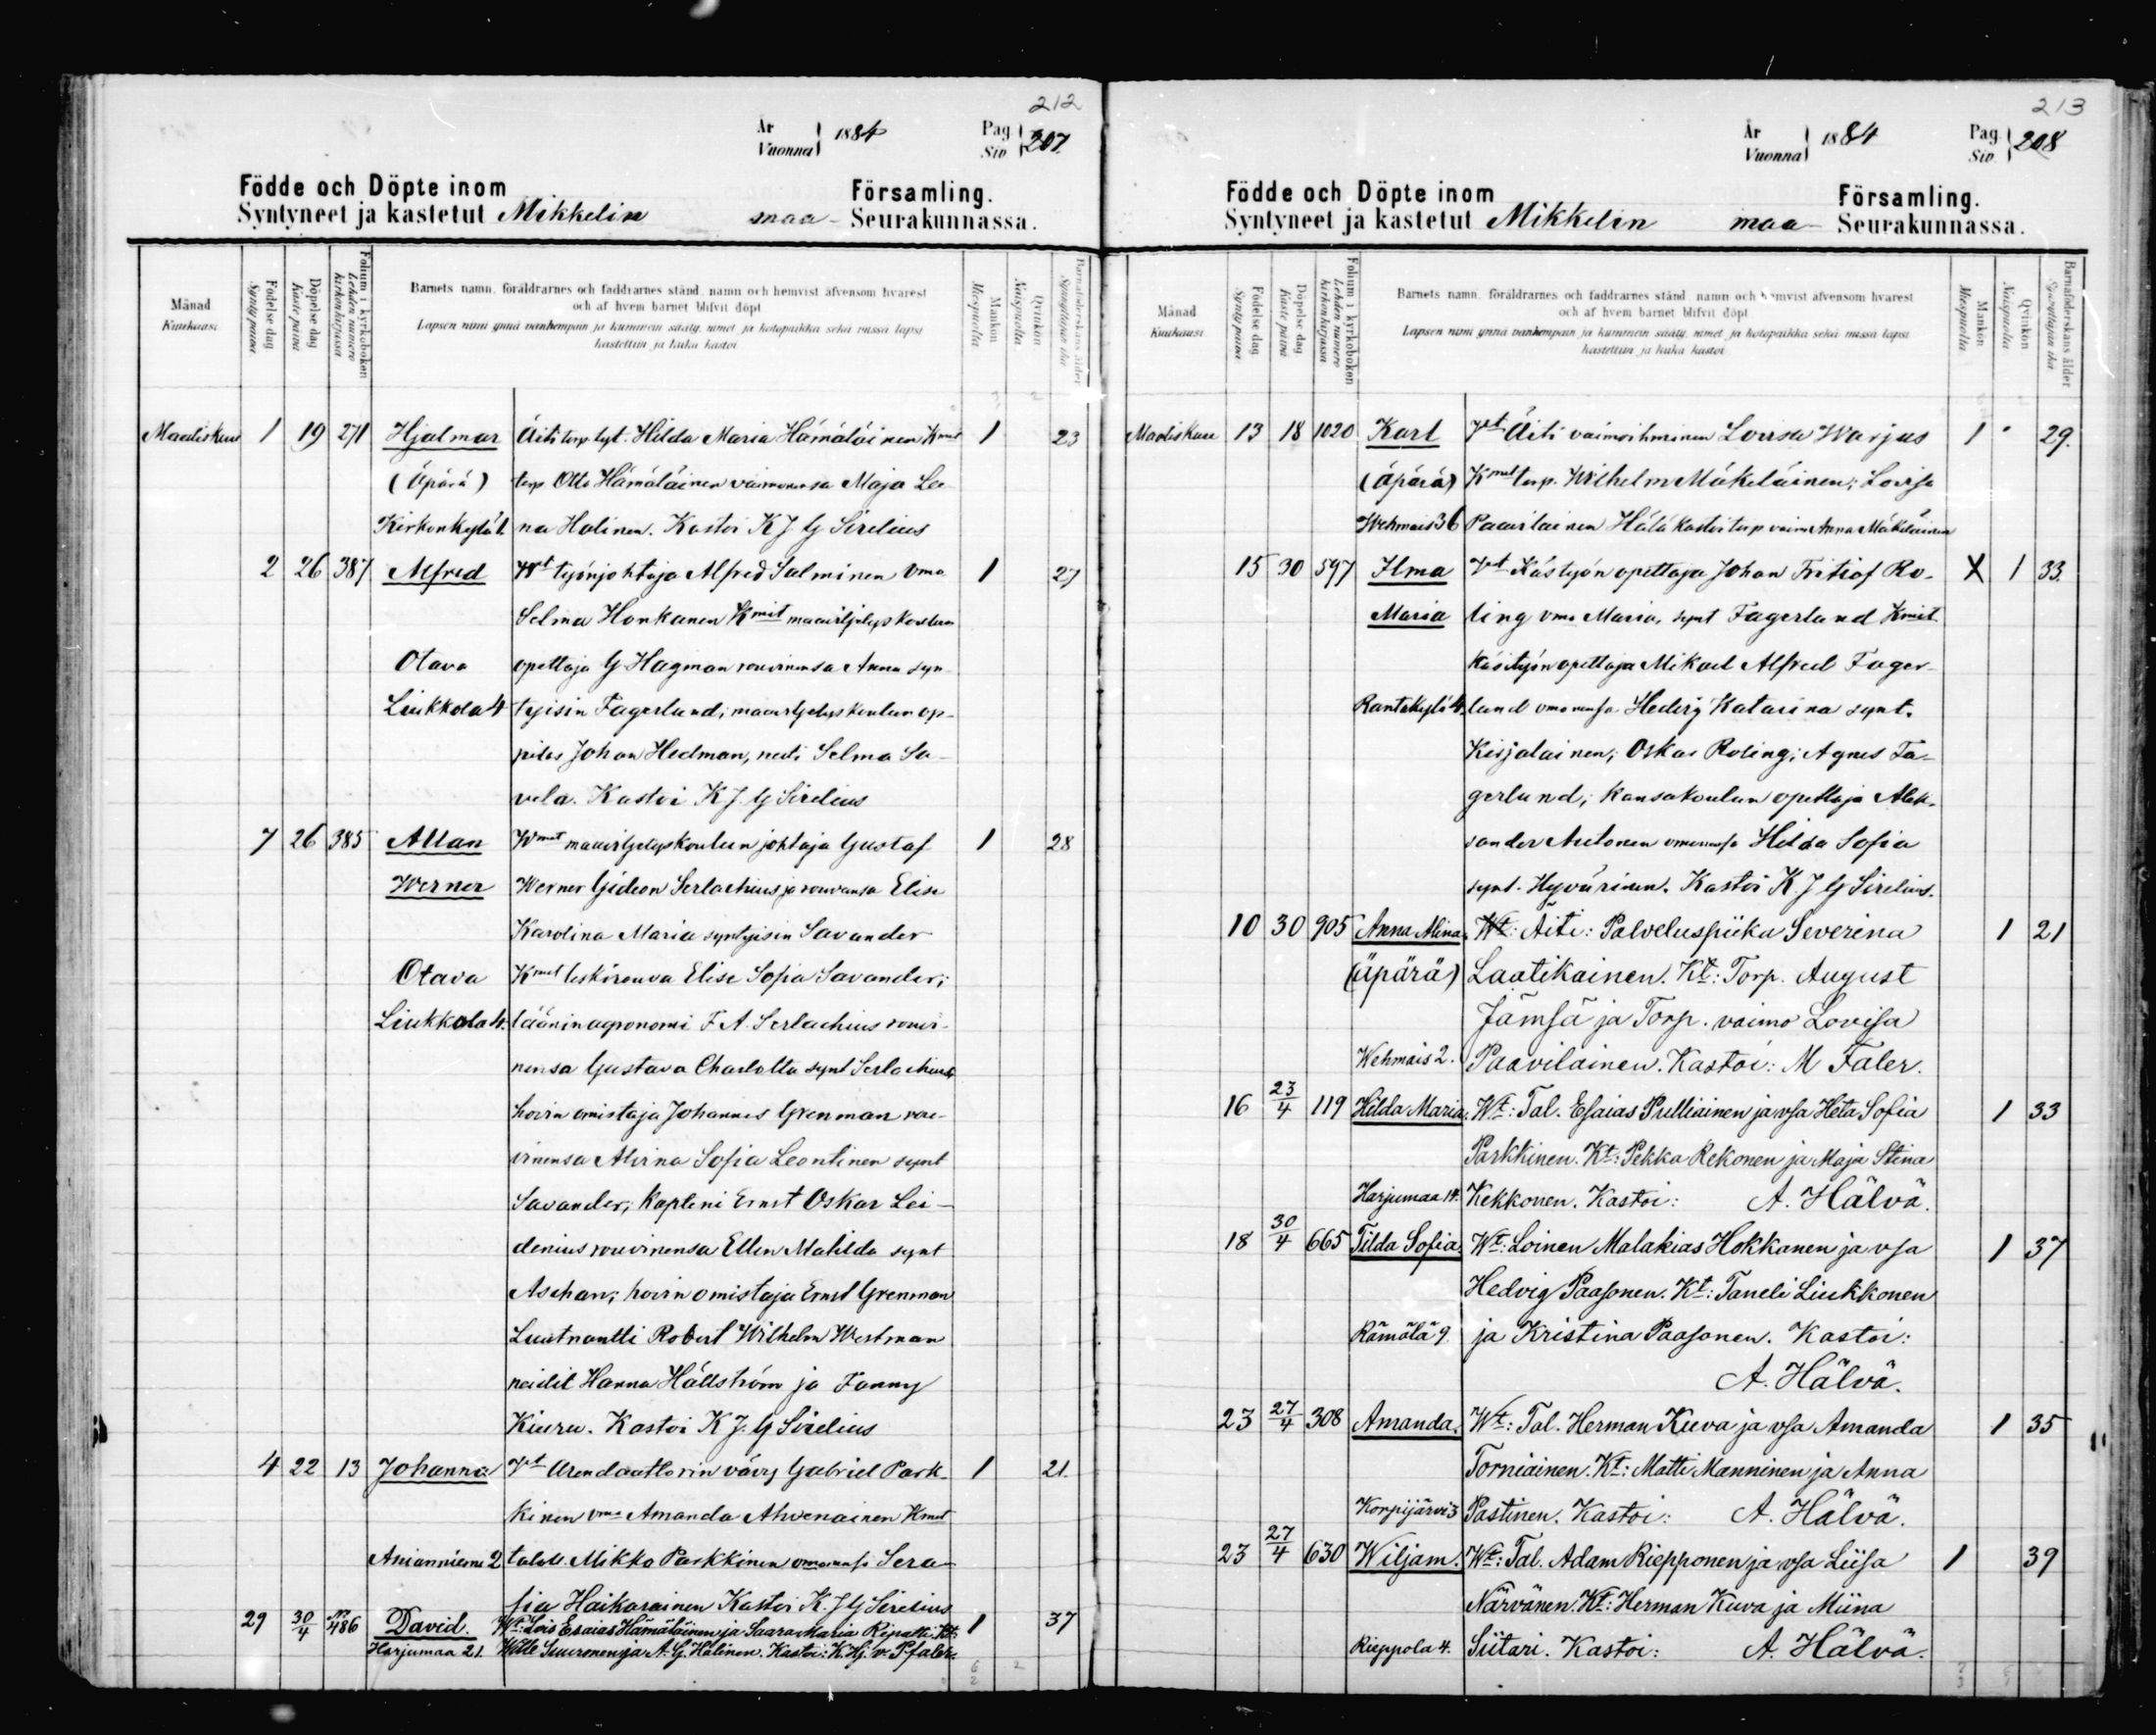 212
År Vuonna 1884 Pag Siv 207
Födde och Döpte inom Församling.
Syntyneet ja kastetut Mikkelin maa- Seurakunnassa.
Månad Kuukausi
Födelse dag Synty päivä
Döpelse dag Kaste päivä
Folium i kyrkoboken Lehden numero kirkonkirjassa
Barnets namn, föräldrarnes och faddrarnes stånd, namn och hemvist äfvensom hvarest
och af hvem barnet blifvit döpt
Lapsen nimi ynnä vanhempain ja kummein sääty, nimet ja kotopaikka sekä missä lapsi
kastettiin ja kuka kastoi
Mankön Miespuolta
Qvinkön Naispuolta
Barnaföderskans ålder Synnyttäjän ikä
Maaliskuu 1 19 271 Hjalmar Äiti torp. tyt. Hilda Maria Hämäläinen Kmit 1 23
(Äpärä) torp Otto Hämäläinen vaimonensa Maja Lee
Kirkonkylä 1. na Halinen. Kastoi K J G Sirelius
2 26 387 Alfred Wt työnjohtaja Alfred Salminen Vmo 1 27
Selma Honkanen Kmit maanviljelyskoulun
Otava opettaja G Hagman rouvinensa Anna syn
Liukkola 4 tyisin Fagerlund; maanviljelyskoulun op-
pilas Johan Hedman, neiti Selma Sa-
vela. Kastoi K J G Sirelius
7 26 385 Allan Wmat maanviljelyskoulun johtaja Gustaf 1 28
Werner Werner Gideon Serlachius ja rouvansa Elise
Karolina Maria syntyisin Savander
Otava Kmat leskirouva Elise Sofia Savander;
Liukkola 4. läänin agronomi F. A. Serlachius rouvi-
nensa Gustava Charlotta synt Serlachius
hovin omistaja Johannes Grenman rou-
vinensa Alvina Sofia Leontinen synt
Savander; kapteni Ernst Oskar Lei-
denius rouvinensa Ellen Matilda synt
Aschan; hovin omistaja Ernst Grenman
Luutnantti Robert Wilhelm Westman
neidit Hanna Hällström ja Fanny
Kiuru. Kastoi K J. G Sirelius
4 22 13 Johanna Vt Arendaattorin vävy Gabriel Park- 1 21.
kinen vmo Amanda Ahvenainen Kmat
Anianniemi 2 taloll. Mikko Parkkinen vmonensa Sera-
fia Haikarainen Kastoi K. J G Sirelius
29 30/4 486 David. Wt: Lois Esaias Hämäläinen ja Saara Maria Ripatti. Kt: 1 37
Harjumaa 21. Wille Suuronen ja A. G. Halinen. Kastoi: K. Hj. v. Pfaler.
213
År Vuonna 1884 Pag Siv. 208
Födde och Döpte inom Församling.
Syntyneet ja kastetut Mikkelin maa- Seurakunnassa.
Månad Kuukausi
Födelse dag Synty päivä
Döpelse dag Kaste päivä
Folium i kyrkoboken Lehden numero kirkonkirjassa
Barnets namn, föräldrarnes och faddrarnes stånd, namn och hemvist äfvensom hvarest
och af hvem barnet blifvit döpt
Lapsen nimi ynnä vanhempain ja kummein sääty, nimet ja kotopaikka sekä missä lapsi
kastettiin ja kuka kastoi
Mankön Miespuolta
Qvinkön Naispuolta
Barnaföderskans ålder Synnyttäjän ikä
Maaliskuu 13 18 1020 Karl Vt Äiti vaimoihminen Lovisa Warjus 1 29.
(Äpärä) Kmat torp. Wilhelm Mäkeläinen; Lovisa
Wehmais 36 Paavilainen Hätä kastoi torp vaimo Anna Mäkeläinen
15 30 597 Ilma Vt Käsityön opettaja Johan Fritiof Ro- X 1 33.
Maria ling vmo Maria, synt Fagerlund Kmit
käsityön opettaja Mikael Alfred Fager-
Rantakylä 4. lund vmonensa Hedvig Katarina synt.
Kirjalainen; Oskar Roling; Agnes Fa-
gerlund; kansakoulun opettaja Alek-
sander Autonen vmonensa Hilda Sofia
synt. Hyvärinen. Kastoi K. J G Sirelius.
10 30 905 Anna Alina. Wt: Äiti: Palveluspiika Severina 1 21
(äpärä) Laatikainen. Kt: Torp. August
Jämsä ja Torp. vaimo Lovisa
Wehmais 2. Paavilainen. Kastoi: M Faler.
16 23/4 119 Hilda Maria. Wt: Tal. Esaias Pulliainen ja vsa Heta Sofia 1 33
Parkkinen. Kt: Pekka Kekonen ja Maja Stina
Harjumaa 14. Kekkonen. Kastoi: A. Hälvä.
18 30/4 665 Tilda Sofia. Wt: Loinen Malakias Hokkanen ja vsa 1 37
Hedvig Paasonen. Kt: Taneli Liukkonen
Rämälä 9. ja Kristina Paasonen. Kastoi:
A. Hälvä.
23 27/4 308 Amanda. Wt: Tal. Herman Kuva ja vsa Amanda 1 35
Torniainen. Kt: Matti Manninen ja Anna
Korpijärvi 3 Pastinen. Kastoi: A. Hälvä.
23 27/4 630 Wiljam. Wt: Tal. Adam Riepponen ja vsa Liisa 1 39
Närvänen. Kt: Herman Kuva ja Miina
Rieppola 4. Siitari. Kastoi: A. Hälvä.